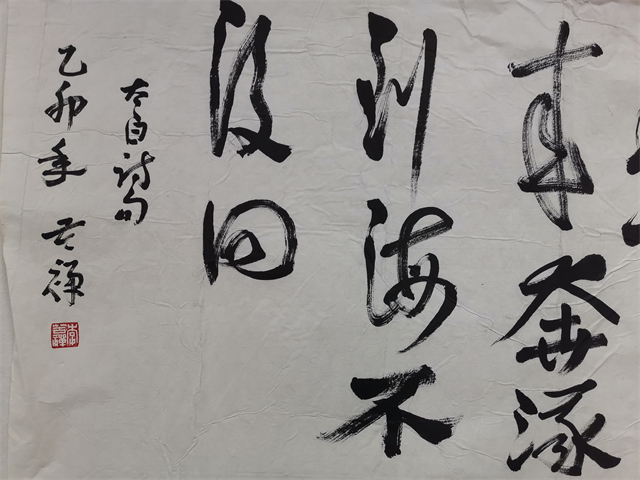 来奔流
到海不
復回
太白詩句
乙卯年 苦禅